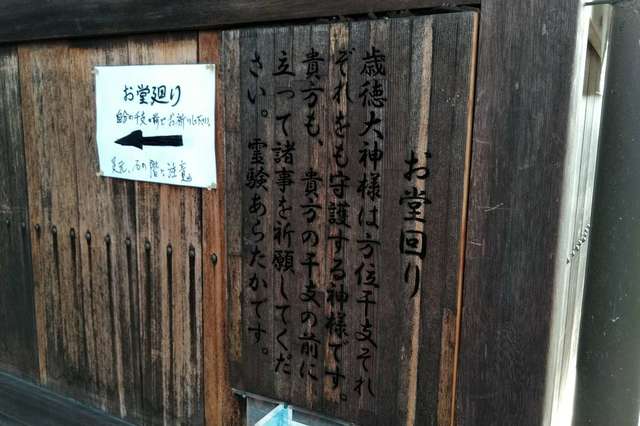 お堂回り
歳徳大神様は方位干支それ
ぞれをも守護する神様です。
貴方も、貴方の干支の前に
立って諸事を祈願してくだ
さい。霊験あらたかです。
お堂廻り
自分の干支の前でお祈り下さい